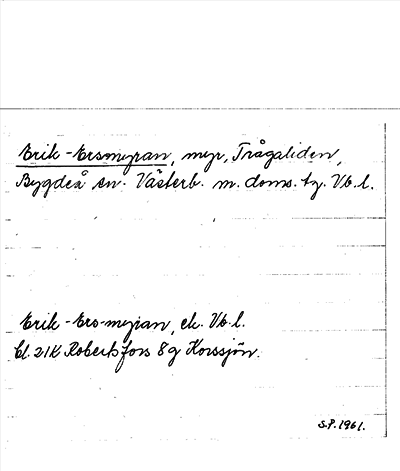 Erik-Ersmyran, myr, Trågaliden,
Bygdeå sn. Västerb. m. doms. tg. Vb. l.
Erik-Ers-myran, ek. Vb. l.
bl. 21K Robertsfors 8 g Korssjön.
S.P. 1961.